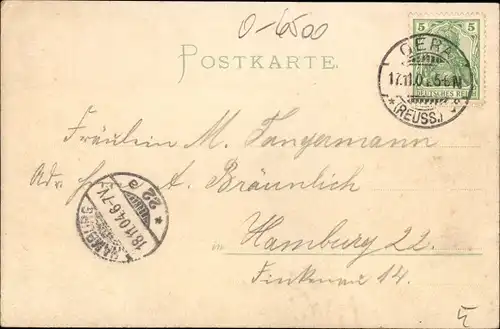 0-6500
POSTKARTE
5 5
DEUTSCHES REICH
GERA
17.11.0
5-6 N
* (REUSS.)
Fräulein M. Tangermann
Adr. A. Bräunlich
Hamburg 22.
14.
HAMBURG
18.11.04.6-7V.
* 22 a